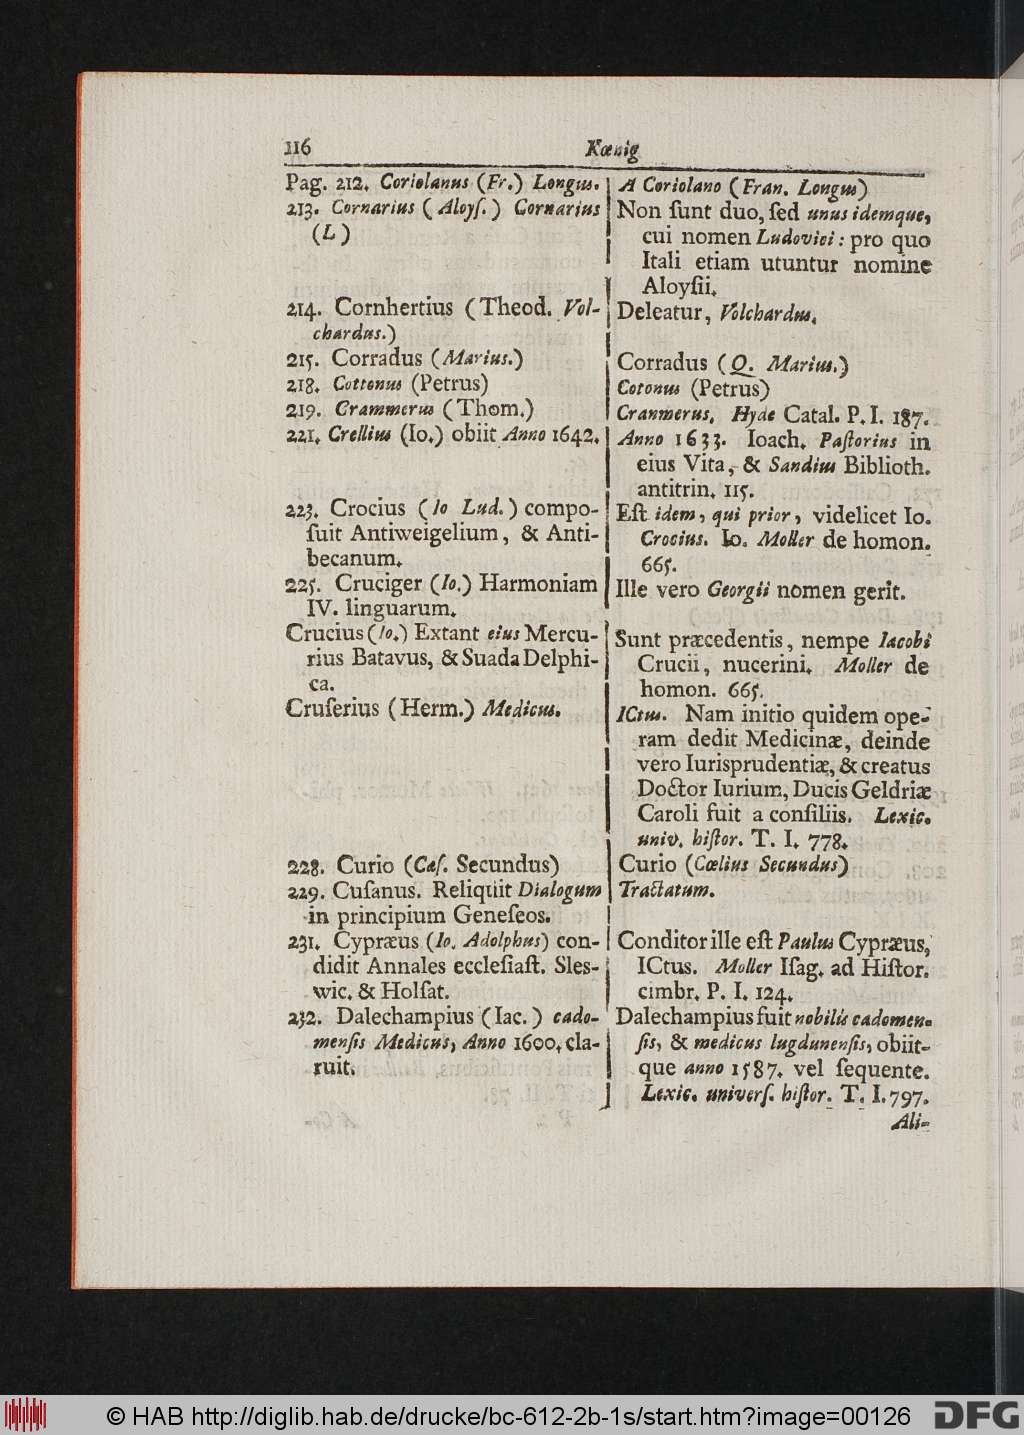 116
Kœnig
Pag. 212. Coriolanus (Fr.) Longus.
213. Cornarius (Aloyſ.) Cornarius
(L)
214. Cornhertius (Theod. Vol-
chardus.)
215. Corradus (Marius.)
218. Cottonus (Petrus)
219. Crammerus (Thom.)
221. Crellius (Io.) obiit Anno 1642.
223. Crocius (Io Lud.) compo-
ſuit Antiweigelium, & Anti-
becanum.
225. Cruciger (Io.) Harmoniam
IV. linguarum.
Crucius (Io.) Extant eius Mercu-
rius Batavus, & Suada Delphi-
ca.
Cruſerius (Herm.) Medicus.
228. Curio (Cæſ. Secundus)
229. Cuſanus. Reliquit Dialogum
in principium Geneſeos.
231. Cypræus (Io. Adolphus) con-
didit Annales eccleſiaſt. Sles-
wic. & Holſat.
232. Dalechampius (Iac.) cado-
menſis Medicus, Anno 1600. cla-
ruit.
A Coriolano (Fran. Longus)
Non ſunt duo, ſed unus idemque,
cui nomen Ludovici: pro quo
Itali etiam utuntur nomine
Aloyſii.
Deleatur, Volchardus.
Corradus (Q. Marius.)
Cotonus (Petrus)
Cranmerus. Hyde Catal. P. I. 187.
Anno 1633. Ioach. Paſtorius in
eius Vita, & Sandius Biblioth.
antitrin. 115.
Eſt idem, qui prior, videlicet Io.
Crocius. Io. Moller de homon.
665.
Ille vero Georgii nomen gerit.
Sunt præcedentis, nempe Iacobi
Crucii, nucerini. Moller de
homon. 665.
ICtus. Nam initio quidem ope-
ram dedit Medicinæ, deinde
vero Iurisprudentiæ, & creatus
Doctor Iurium, Ducis Geldriæ
Caroli fuit a conſiliis. Lexic.
univ. hiſtor. T. I. 778.
Curio (Cœlius Secundus)
Tractatum.
Conditor ille eſt Paulus Cypræus,
ICtus. Moller Iſag. ad Hiſtor.
cimbr. P. I. 124.
Dalechampius fuit nobilis cadomen-
ſis, & medicus lugdunenſis, obiit-
que anno 1587. vel ſequente.
Lexic. univerſ. hiſtor. T. I. 797.
Ali-
© HAB http://diglib.hab.de/drucke/bc-612-2b-1s/start.htm?image=00126
DFG